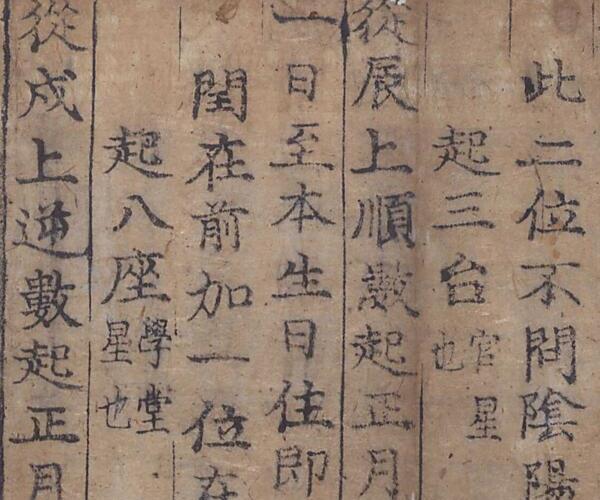 此二位不問陰陽
起三台官星也
從辰上順數起正月
一日至本生日住即
閏在前加一位在
起八座學堂星也
從戌上逆數起正月